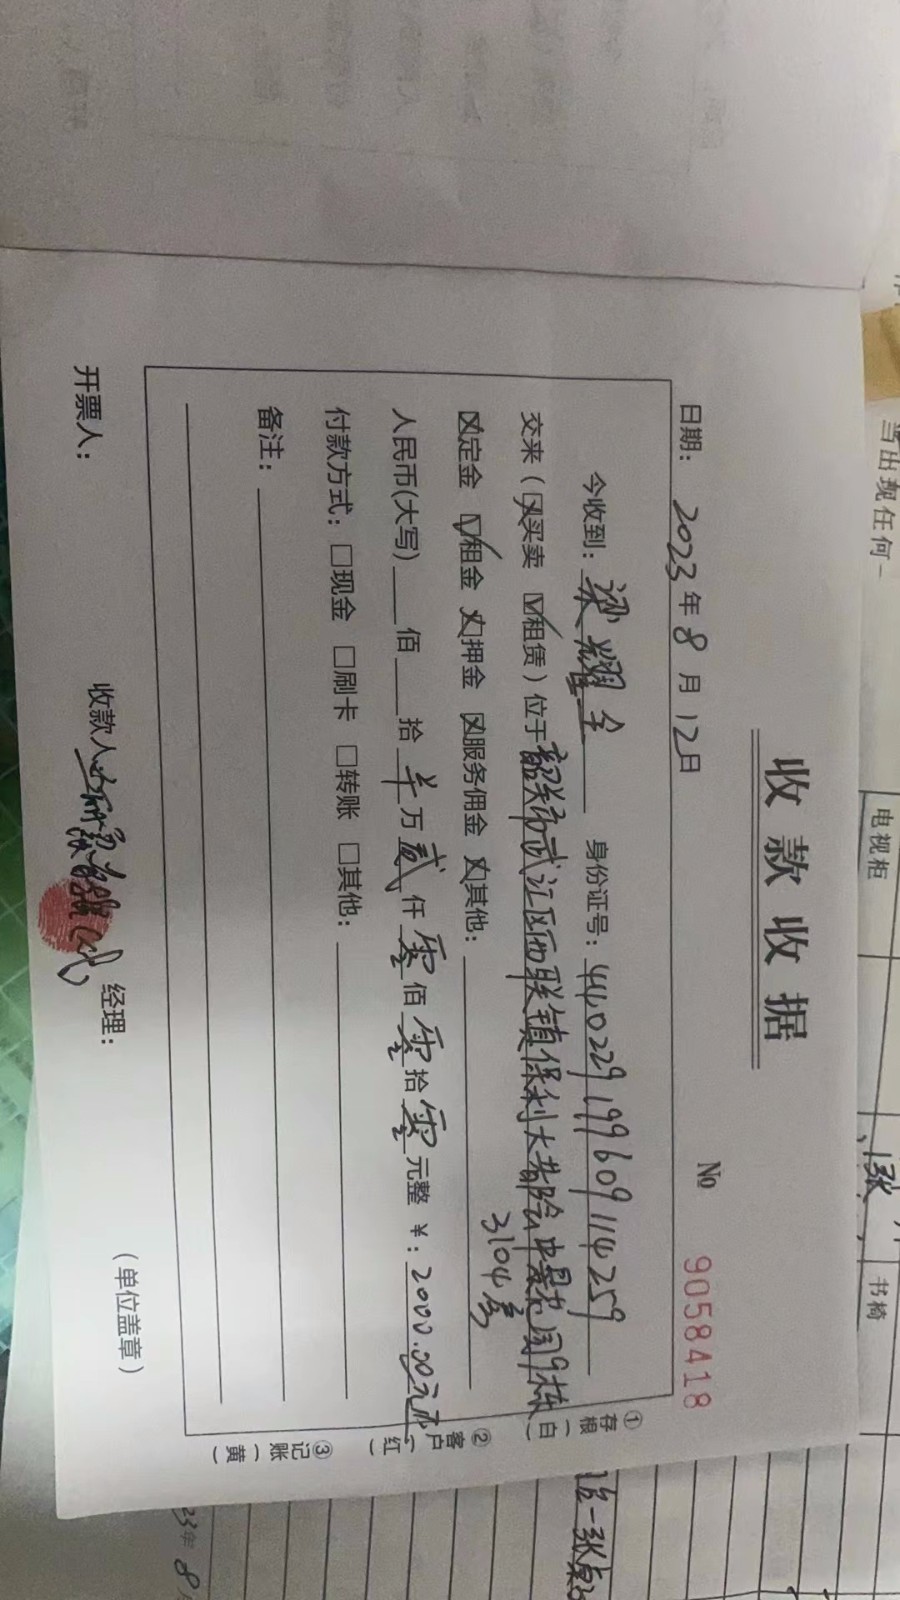 收款收据
№ 9058418
日期：2023年8月12日
今收到：梁耀全 身份证号：440229199609114259
交来（☒买卖 ☑租赁）位于韶关市武江区西联镇保利大都会中景花园9栋
3104房
☒定金 ☑租金 ☒押金 ☒服务佣金 ☒其他：
人民币(大写) 佰 拾 羊万贰仟零佰零拾零元整 ¥：2000.00元
付款方式：□现金 □刷卡 □转账 □其他：
备注：
开票人： 收款人 (代) 经理： （单位盖章）
①存根（白）
②客户（红）
③记账（黄）
当出现任何一
电视柜
1张
书椅
一张桌
23年8